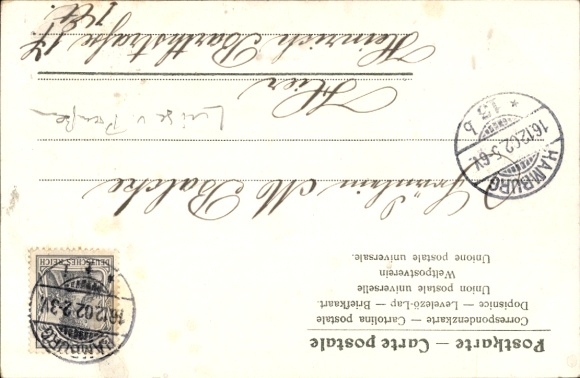 Postkarte — Carte postale
Correspondenzkarte — Cartolina postale
Dopisnice — Levelező-Lap — Briefkaart.
Union postale universelle
Weltpostverein
Unione postale universale.
DEUTSCHES REICH
HAMBURG
16.12.02.2-3N.
Fräulein M Balcke
Luise v
HAMBURG
16.12.02.5-6N.
* 13 b
Hier
Heinrich Barthstraße 17